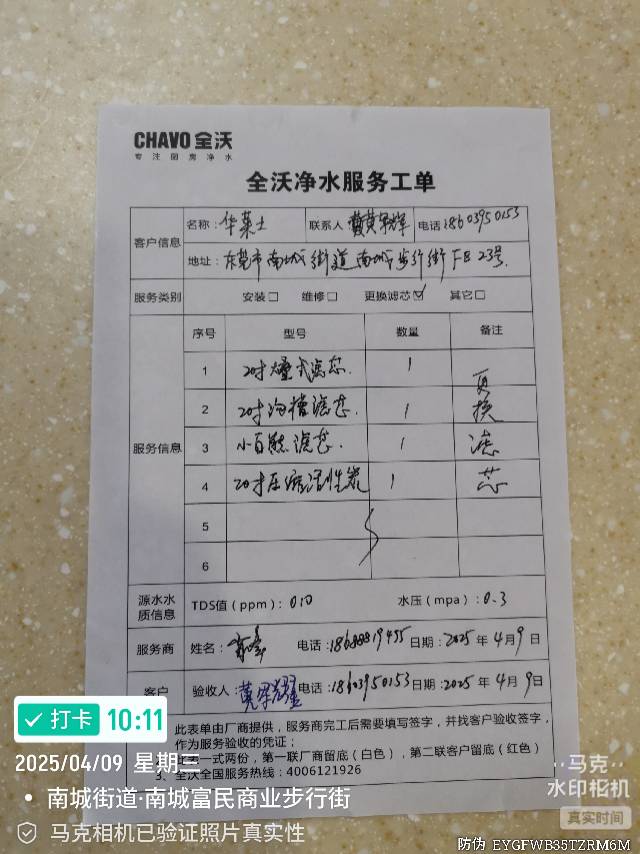 CHAVO 全沃
专注厨房净水
全沃净水服务工单
客户信息
名称：华莱士 联系人 电话：18603950153
地址：东莞市南城街道南城步行街FB23号.
服务类别 安装□ 维修□ 更换滤芯☑ 其它□
服务信息
序号 型号 数量 备注
1 20寸 滤芯. 1
2 20寸 滤芯. 1
3 小白熊滤芯. 1
4 20寸压缩活性炭 1
5
6
更换滤芯
源水水质信息 TDS值（ppm）：010 水压（mpa）：0.3
服务商 姓名： 电话：18688819455 日期：2025年4月9日
客户 验收人： 电话：18603950153 日期：2025年4月9日
此表单由厂商提供，服务商完工后需要填写签字，并找客户验收签字，
作为服务验收的凭证；
一式两份，第一联厂商留底（白色），第二联客户留底（红色）
3、全沃全国服务热线：4006121926
打卡 10:11
2025/04/09 星期三
南城街道·南城富民商业步行街
马克相机已验证照片真实性
马克
水印相机
真实时间
防伪 EYGFWB35TZRM6M